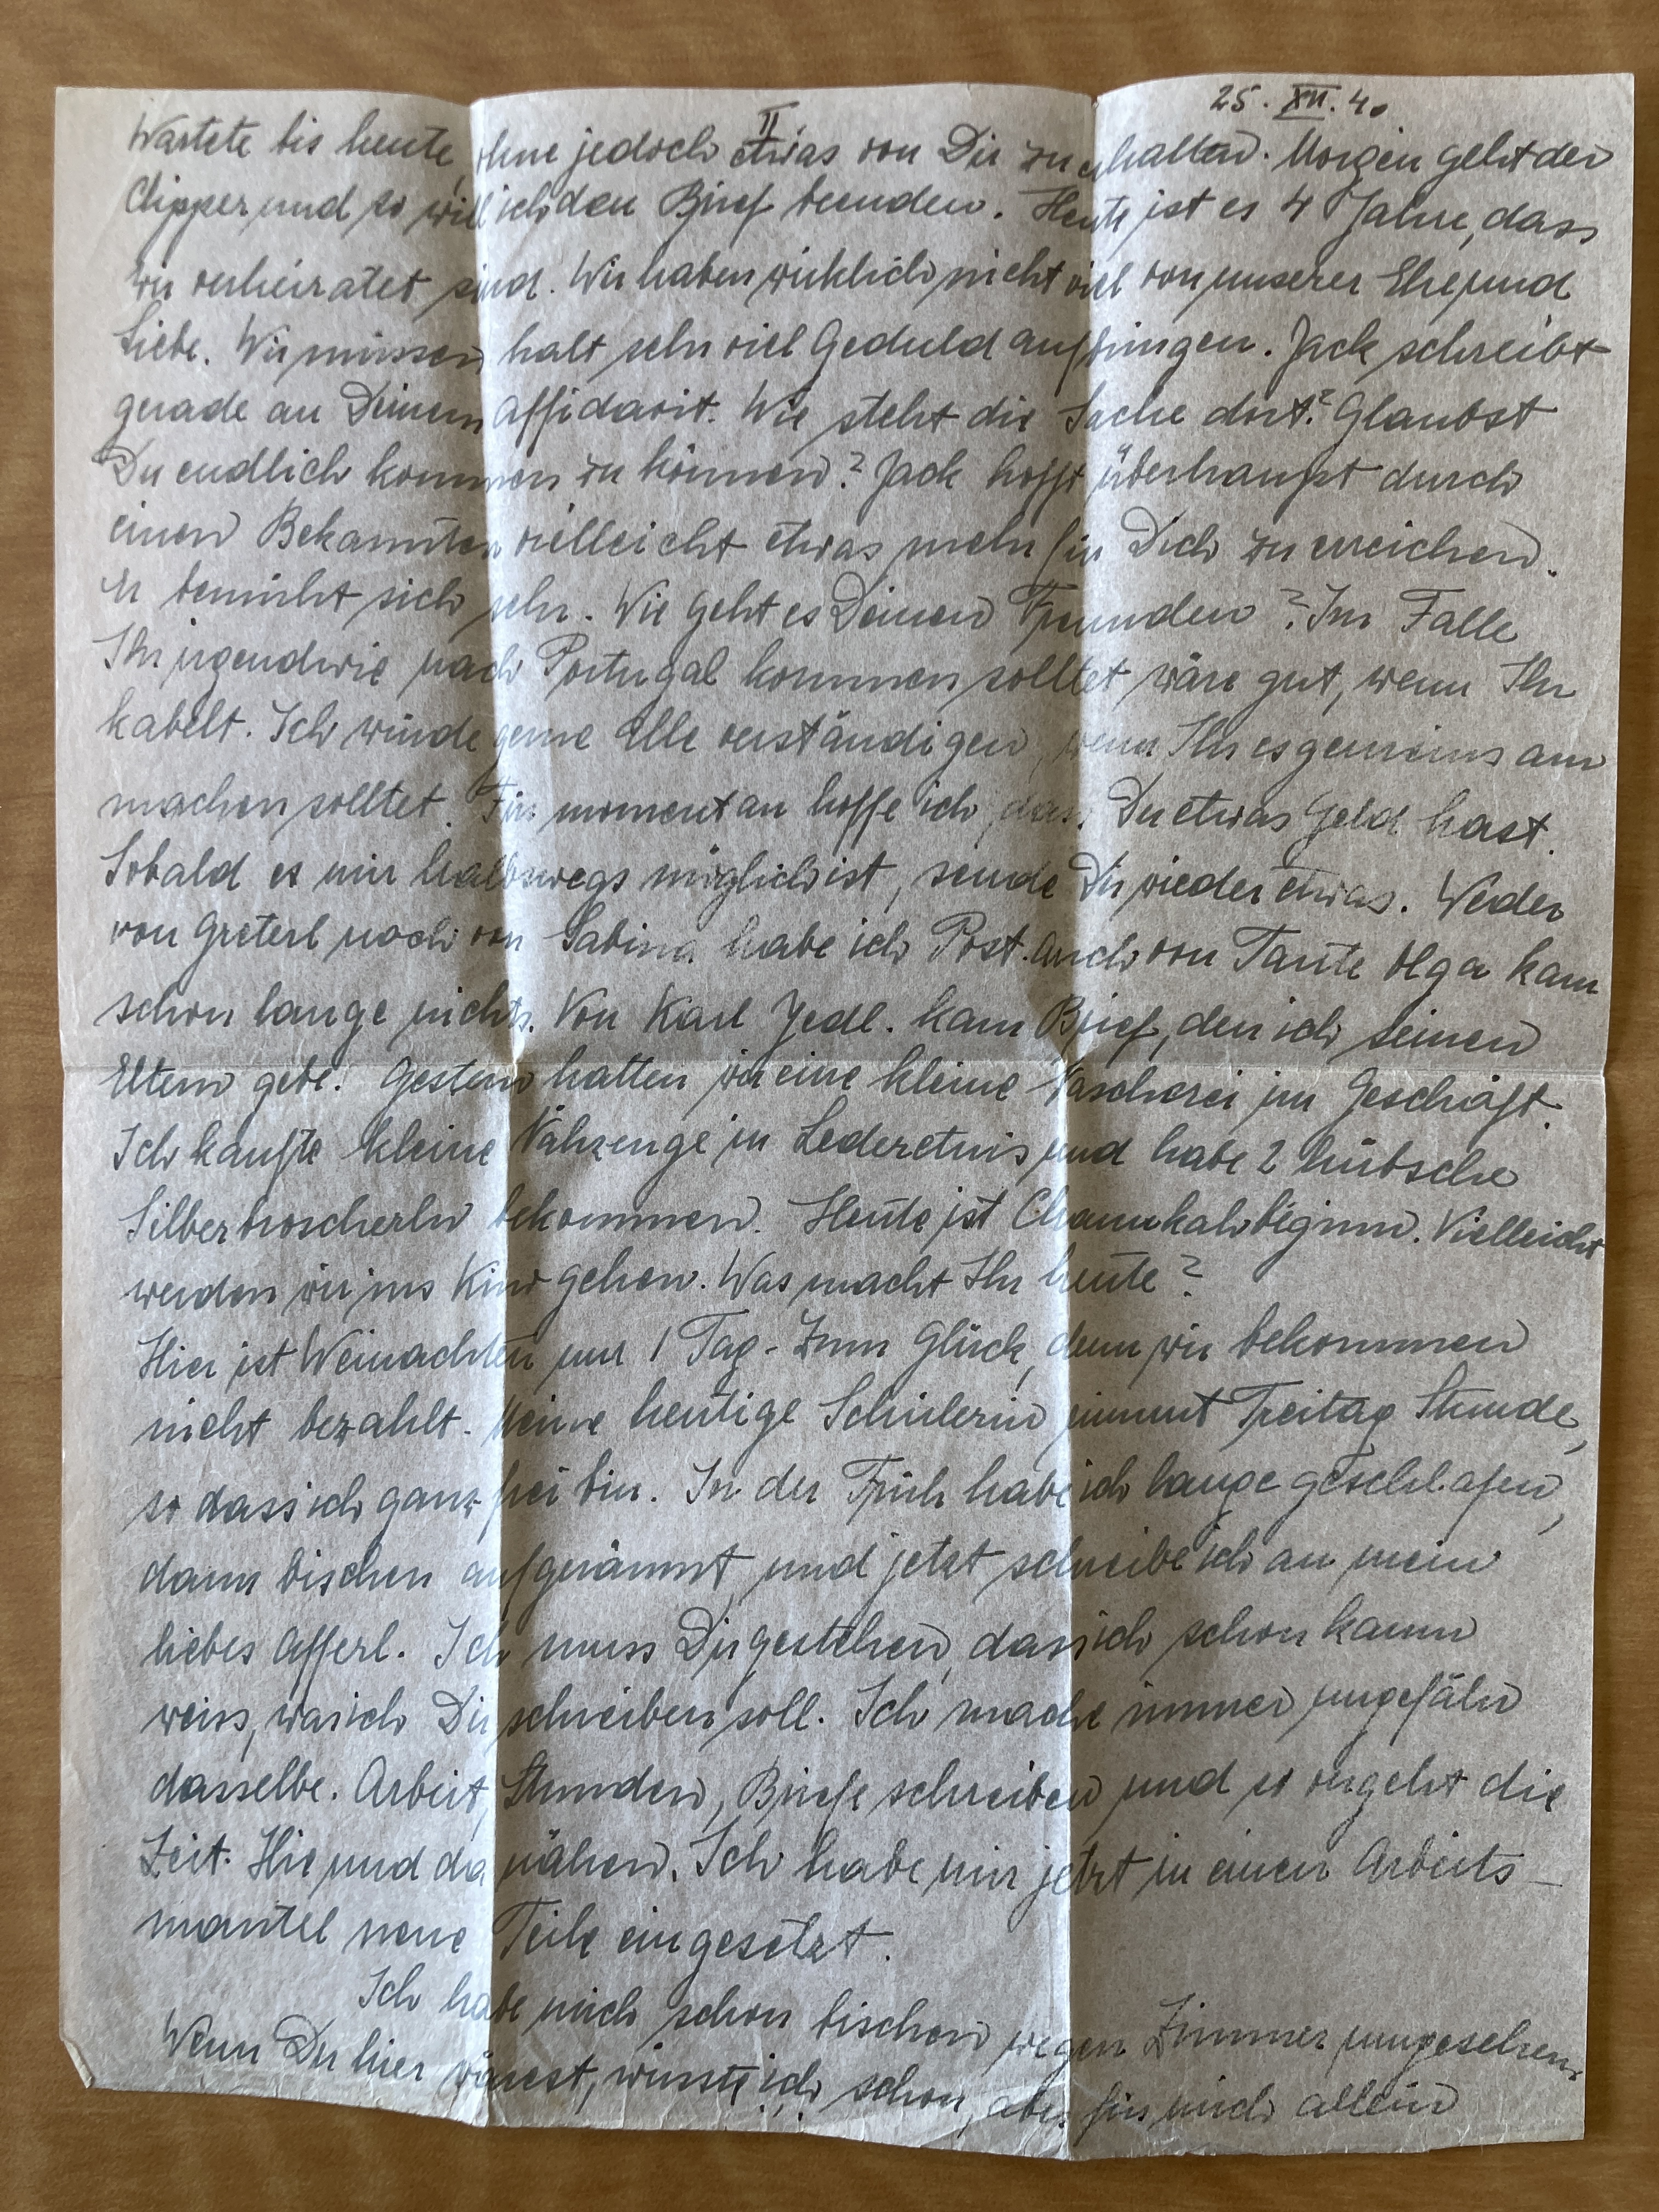 25. XII. 40
II.
Wartete bis heute, ohne jedoch etwas von Dir zu erhalten. Morgen geht der
Clipper und so will ich den Brief beenden. Heute ist es 4 Jahre, dass
wir verheiratet sind. Wir haben wirklich nicht viel von unserer Ehe und
Liebe. Wir müssen halt sehr viel Geduld aufbringen. Jack schreibt
gerade an Deinem Affidavit. Wie steht die Sache dort? Glaubst
Du endlich kommen zu können? Jack hofft überhaupt durch
einen Bekannten vielleicht etwas mehr für Dich zu erreichen.
Er bemüht sich sehr. Wie geht es Deinen Freunden? Im Falle
Ihr irgendwie nach Portugal kommen solltet wäre gut, wenn Ihr
kabelt. Ich würde gerne Alle verständigen, wenn Ihr es gemeinsam
machen solltet. Für momentan hoffe ich, dass Du etwas Geld hast.
Sobald es mir halbwegs möglich ist, sende Dir wieder etwas. Weder
von Greterl noch von Sabina habe ich Post. Auch von Tante Olga kam
schon lange nichts. Von Karl Jedl. kam Brief, den ich seinen
Eltern gebe. Gestern hatten wir eine kleine Nascherei im Geschäft.
Ich kaufte kleine Nähzeuge in Lederetuis und habe 2 hübsche
Silberbroscherln bekommen. Heute ist Channukahbeginn. Vielleicht
werden wir ins Kino gehen. Was macht Ihr heute?
Hier ist Weinachten nur 1 Tag - Zum Glück, denn wir bekommen
nicht bezahlt. Meine heutige Schülerin nimmt Freitag Stunde,
so dass ich ganz frei bin. In der Früh habe ich lange geschlafen,
dann bischen aufgeräumt und jetzt schreibe ich an mein
liebes Afferl. Ich muss Dir gestehen, dass ich schon kaum
weiss, was ich Dir schreiben soll. Ich mache immer ungefähr
dasselbe. Arbeit, Stunden, Briefe schreiben und so vergeht die
Zeit. Hie und da nähen. Ich habe mir jetzt in einen Arbeits-
mantel neue Teile eingesetzt.
Ich habe mich schon bischen wegen Zimmer umgesehen.
Wenn Du hier wärest, wüsste ich schon, aber für mich allein